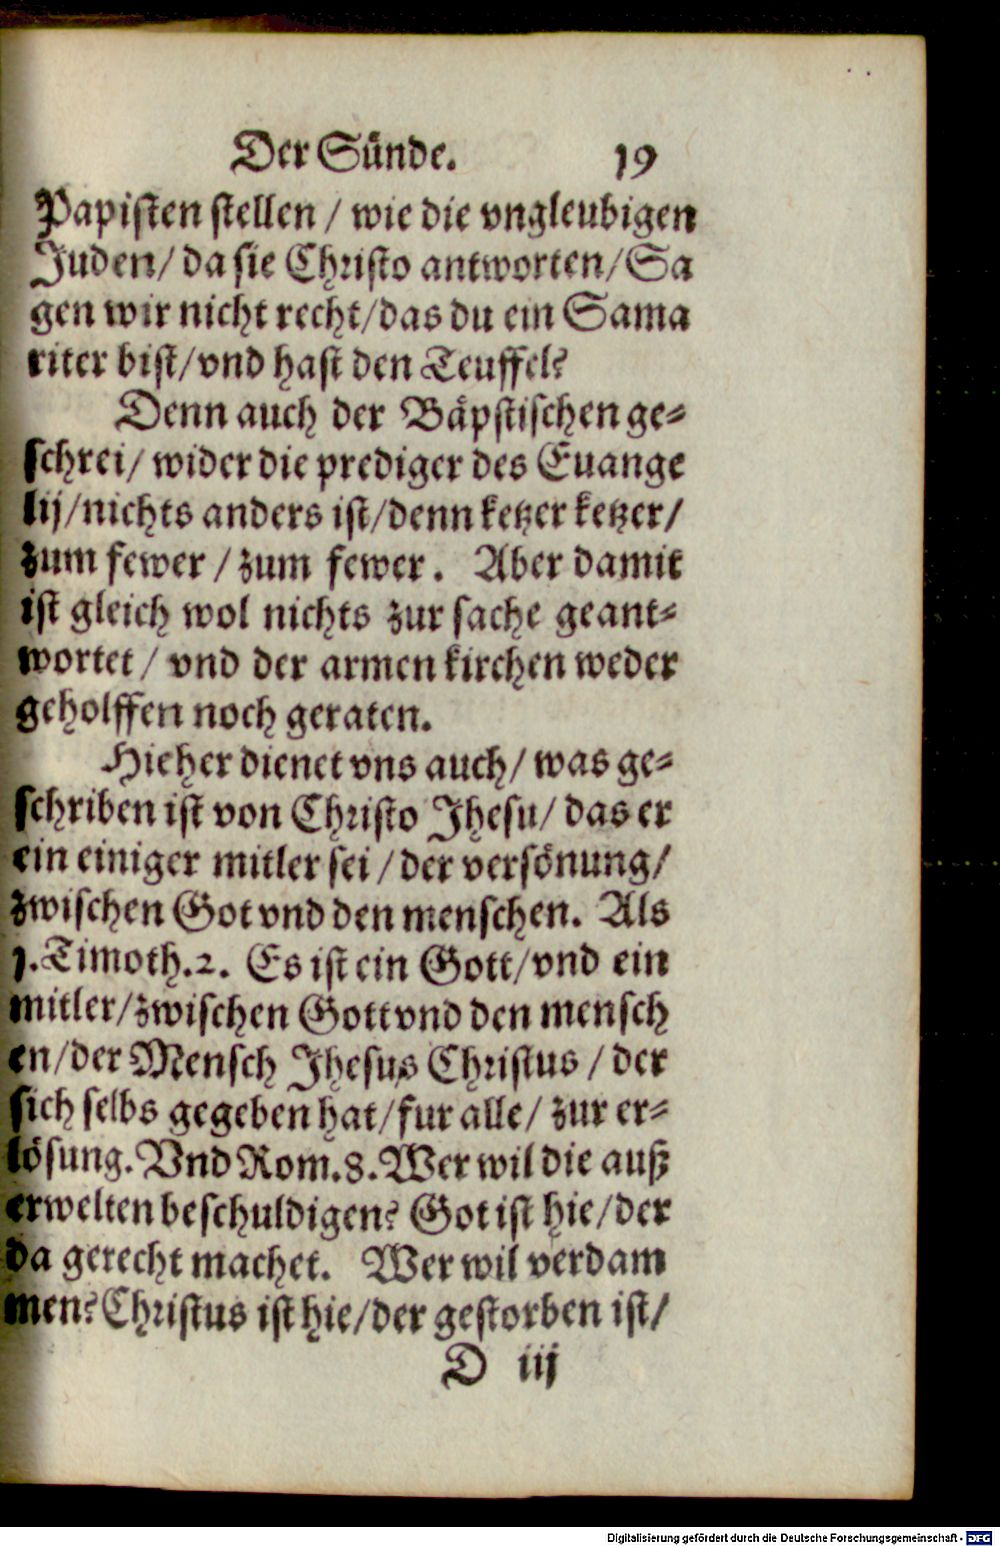 Der Sünde. 19
Papisten stellen / wie die vngleubigen
Juden/ da sie Christo antworten/ Sa
gen wir nicht recht/das du ein Sama
riter bist/vnd hast den Teuffel?
Denn auch der Bäpstischen ge-
schrei/ wider die prediger des Euange
lij/nichts anders ist/denn ketzer ketzer/
zum fewer / zum fewer. Aber damit
ist gleich wol nichts zur sache geant-
wortet / vnd der armen kirchen weder
geholffen noch geraten.
Hieher dienet vns auch/ was ge-
schriben ist von Christo Jhesu/ das er
ein einiger mitler sei / der versönung/
zwischen Got vnd den menschen. Als
1. Timoth. 2. Es ist ein Gott/vnd ein
mitler/zwischen Gott vnd den mensch
en/der Mensch Jhesus Christus / der
sich selbs gegeben hat/fur alle/ zur er-
lösung. Vnd Rom. 8. Wer wil die auß
erwelten beschuldigen? Got ist hie/der
da gerecht machet. Wer wil verdam
men? Christus ist hie/der gestorben ist/
D iij
Digitalisierung gefördert durch die Deutsche Forschungsgemeinschaft - DFG